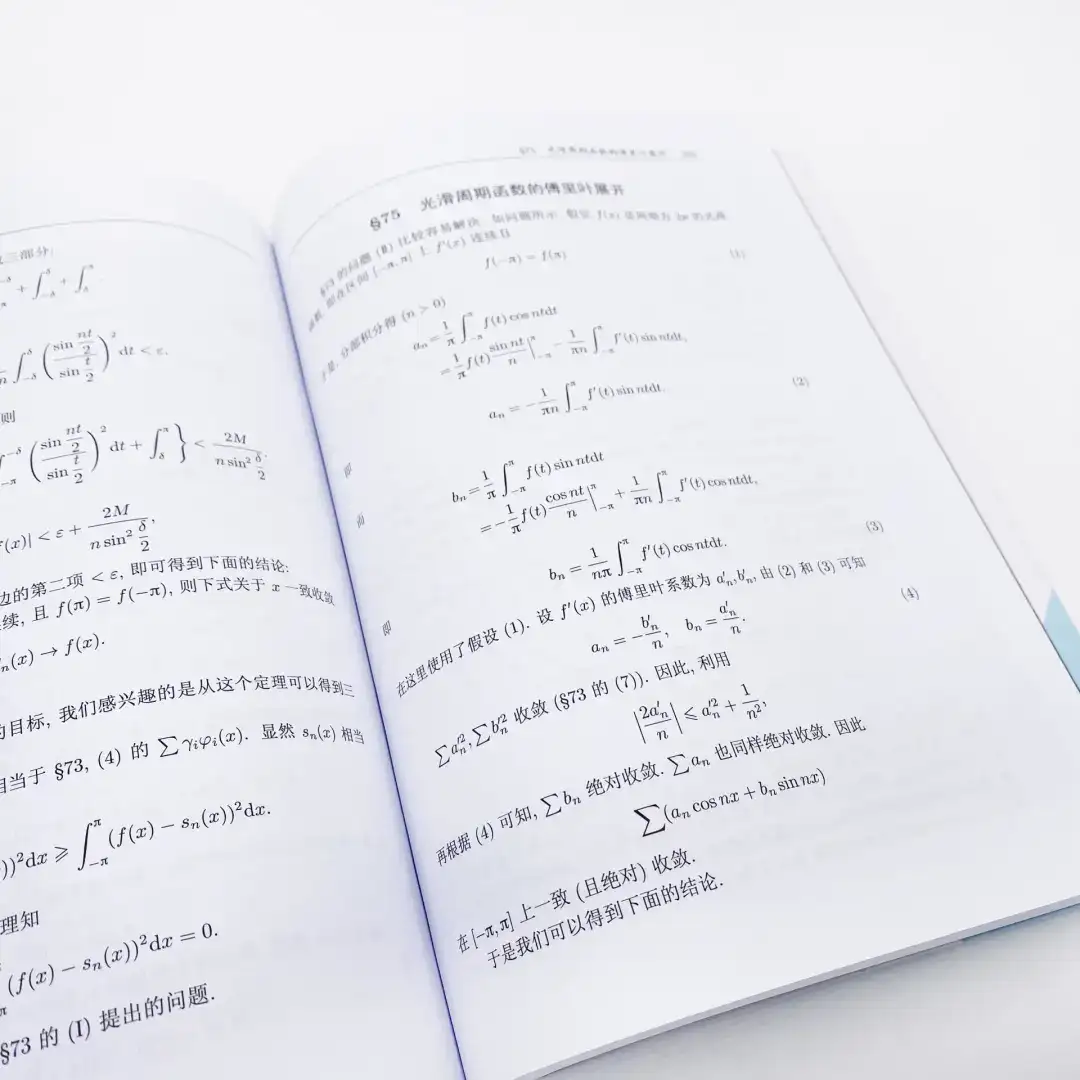 三部分:
∫_{-δ}^{δ} + ∫_{δ}^{π}
∫_{-δ}^{δ} (sin nt/2 / sin t/2)² dt < ε.
则
(sin nt/2 / sin t/2)² dt + ∫_{δ}^{π} } < 2M / (n sin² δ/2).
f(x)| < ε + 2M / (n sin² δ/2),
边的第二项 < ε, 即可得到下面的结论:
续, 且 f(π) = f(−π), 则下式关于 x 一致收敛
(x) → f(x).
的目标, 我们感兴趣的是从这个定理可以得到三
相当于 §73, (4) 的 ∑γᵢφᵢ(x). 显然 sₙ(x) 相当
))²dx ⩾ ∫_{−π}^{π} (f(x) − sₙ(x))²dx.
理知
(f(x) − sₙ(x))²dx = 0.
§73 的 (I) 提出的问题.
§75 光滑周期函数的傅里叶展开
§73 的问题 (II) 比较容易解决. 如问题所示, 假定 f(x) 是周期为 2π 的光滑
函数, 即在区间 [−π, π] 上 f′(x) 连续且
f(−π) = f(π) (1)
于是, 分部积分得 (n > 0)
aₙ = 1/π ∫_{−π}^{π} f(t) cos ntdt
= 1/π f(t) sin nt/n |_{−π}^{π} − 1/πn ∫_{−π}^{π} f′(t) sin ntdt,
即
aₙ = −1/πn ∫_{−π}^{π} f′(t) sin ntdt. (2)
而
bₙ = 1/π ∫_{−π}^{π} f(t) sin ntdt
= −1/π f(t) cos nt/n |_{−π}^{π} + 1/πn ∫_{−π}^{π} f′(t) cos ntdt,
即
bₙ = 1/nπ ∫_{−π}^{π} f′(t) cos ntdt. (3)
在这里使用了假设 (1). 设 f′(x) 的傅里叶系数为 a′ₙ, b′ₙ, 由 (2) 和 (3) 可知
aₙ = −b′ₙ/n, bₙ = a′ₙ/n. (4)
∑a′ₙ², ∑b′ₙ² 收敛 (§73 的 (7)). 因此, 利用
|2a′ₙ/n| ⩽ a′ₙ² + 1/n²,
再根据 (4) 可知, ∑bₙ 绝对收敛. ∑aₙ 也同样绝对收敛. 因此
∑(aₙ cos nx + bₙ sin nx)
在 [−π, π] 上一致 (且绝对) 收敛.
于是我们可以得到下面的结论.